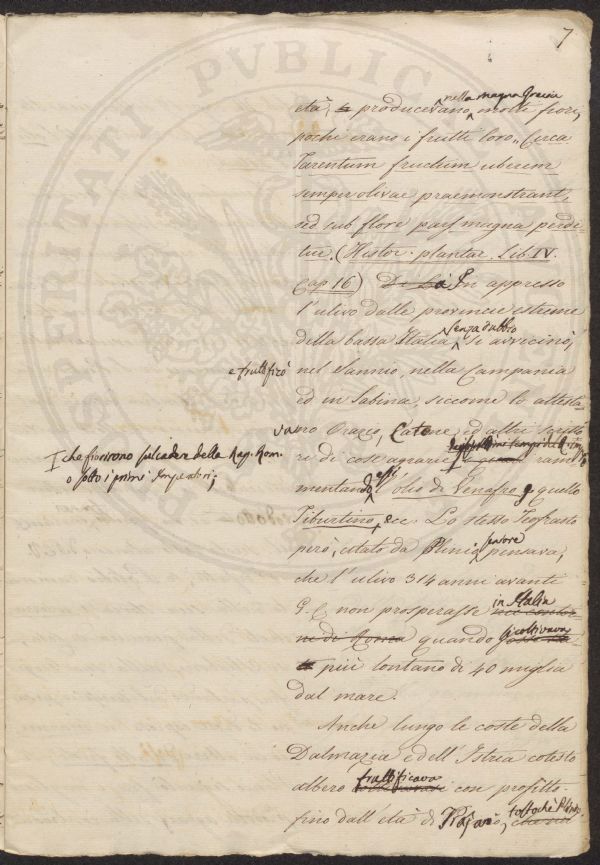 7
età, producevano nella magna Grecia molti fiori,
pochi erano i frutti loro „ Circa
Tarentum fructum uberem
semper olivae praemonstrant,
sed sub flore pars magna perdi-
tur. (Histor. plantar. Lib IV.
Cap 16) In appresso
l'ulivo dalle provincie esterne
della bassa Italia senza dubbio si avvicinò,
e fruttificò nel Sannio, nella Campania
ed in Sabina, siccome lo attesta-
vano Orazio, Catone, ed altri scritto-
ri di cose agrarie
I che fiorirono sul cader della Rep. Rom.
o sotto i primi Imperatori;
ram-
mentando essi l'olio di Venafro, quello
Tiburtino, ecc. Lo stesso Teofrasto
però, citato da Plinio, pensava,
che l'ulivo 314 anni avanti
G. C. non prosperasse in Italia
quando si coltivava
più lontano di 40 miglia
dal mare.
Anche lungo le coste della
Dalmazia e dell'Istria cotesto
albero fruttificava con profitto
fino dall'età di Trajano, tostochè Plinio
PROSPERITATI PUBLICAE